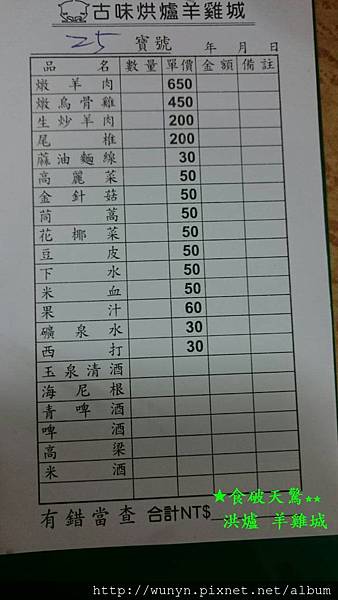 古味烘爐羊雞城
25 寶號 年 月 日
品名 數量 單價 金額 備註
燉羊肉 650
燉烏骨雞 450
生炒羊肉 200
尾椎 200
蔴油麵線 30
高麗菜 50
金針菇 50
茼蒿 50
花椰菜 50
豆皮 50
下水 50
米血 50
果汁 60
礦泉水 30
西打 30
玉泉清酒
海尼根
青啤酒
啤酒
高梁
米酒
有錯當查 合計NT$
★食破天驚★★
洪爐 羊雞城
http://wunyn.pixnet.net/album